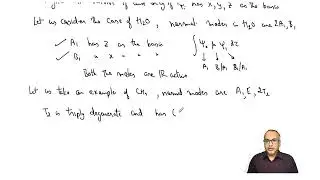 if has x, y, z as the basis
Let us consider the case of H2O, normal modes in H2O are 2A1, B1
✓ A1 has z as the basis ∫ψ0 μ ψ1 dτ
✓ B1 " x " " " A1 B1/A1 B1/A1
Both the modes are IR active
Let us take an example of CH4, normal modes are A1, E, 2T2
T2 is triply degenerate and has (